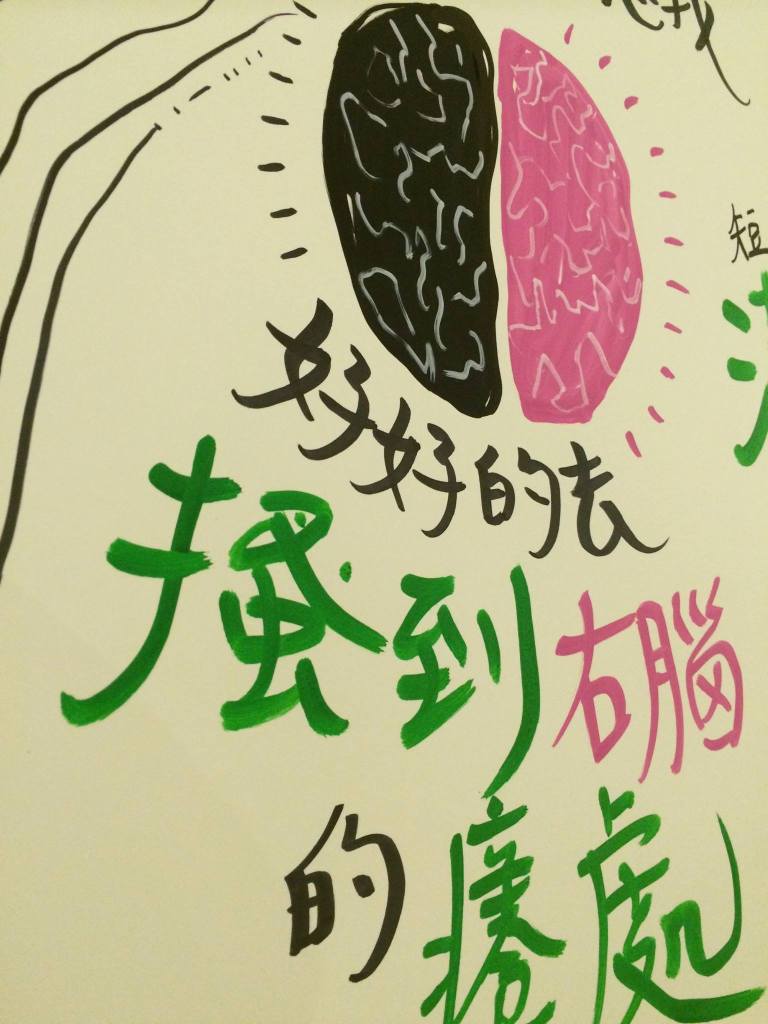 短
好好的去
搔到右腦
的癢處